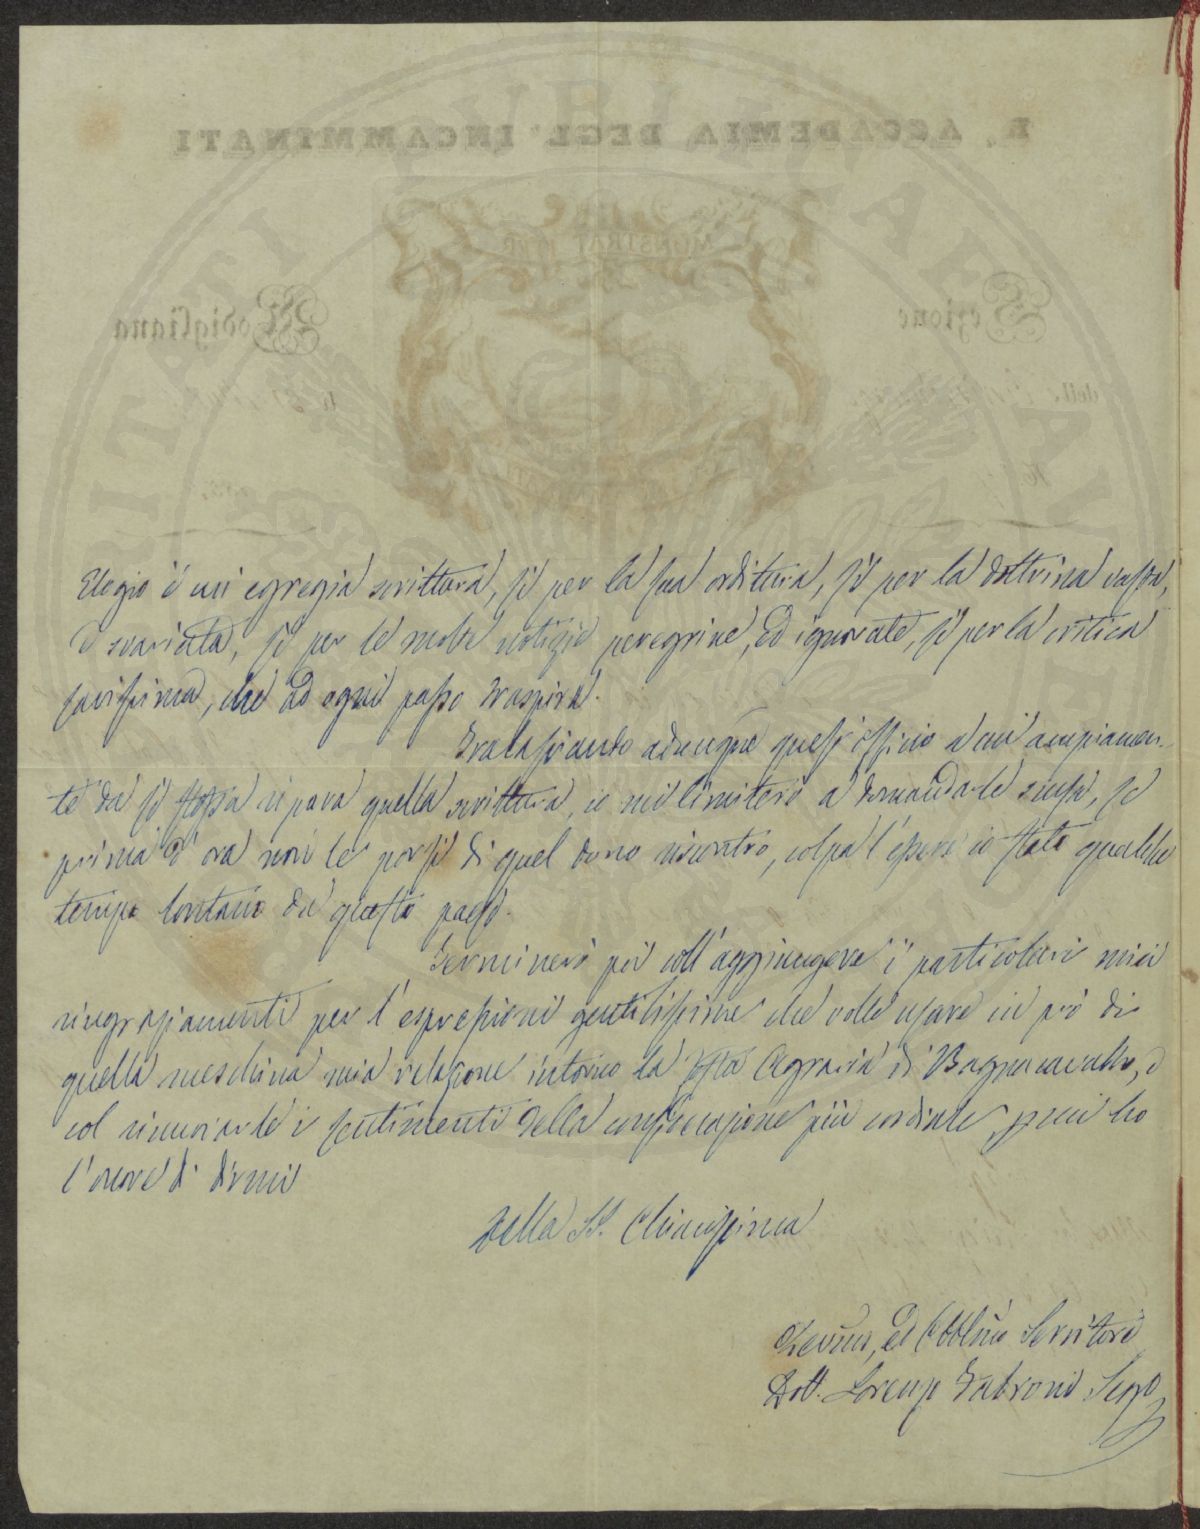 Elogio è un' egregia scrittura, sì per la sua orditura, sì per la dottrina vasta,
e svariata, sì per le molte notizie peregrine, ed ignorate, sì per la critica
savissima, che ad ogni passo traspira.
Tralasciando adunque quest' officio a cui ampiamen-
te da sè stessa ripara quella scrittura, io mi limiterò a domandarle scusa, se
prima d' ora non le porsi di quel dono riscontro, colpa l' essere io stato qualche
tempo lontano da questo paese.
Terminerò poi coll' aggiungere i particolari miei
ringraziamenti per l' espressioni gentilissime che volle usare in prò di
quella meschina mia relazione intorno la festa Agraria di Bagnacavallo, e
col rinnovarle i sentimenti della considerazione più cordiale, ho
l' onore di dirmi
Della S.S. Chiarissima
Devmo, ed Obblmo Servitore
Dott. Lorenzo Fabroni Segro
R. ACCADEMIA DEGL' INCAMMINATI
MONSTRAT ITER
Sezione
Modigliana
delle